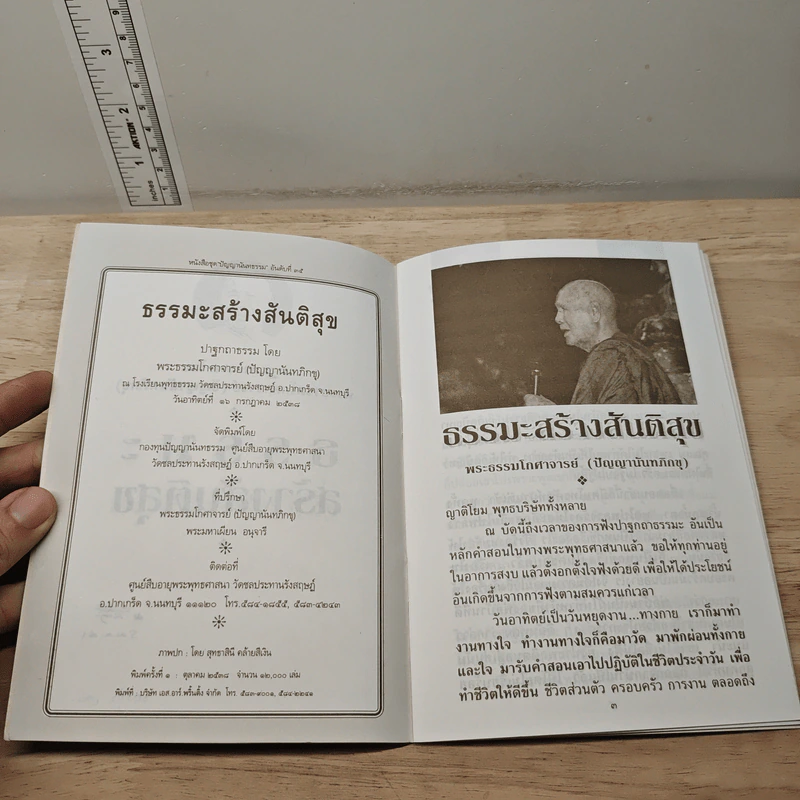 inches
1
2
3
AKTION
1
2
3
4
5
6
7
8
9
หนังสือชุด"ปัญญานันทธรรม" อันดับที่ ๓๕
ธรรมะสร้างสันติสุข
ปาฐกถาธรรม โดย
พระธรรมโกศาจารย์ (ปัญญานันทภิกขุ)
ณ โรงเรียนพุทธธรรม วัดชลประทานรังสฤษฎ์ อ.ปากเกร็ด จ.นนทบุรี
วันอาทิตย์ที่ ๑๖ กรกฎาคม ๒๕๓๘
จัดพิมพ์โดย
กองทุนปัญญานันทธรรม ศูนย์สืบอายุพระพุทธศาสนา
วัดชลประทานรังสฤษฎ์ อ.ปากเกร็ด จ.นนทบุรี
ที่ปรึกษา
พระธรรมโกศาจารย์ (ปัญญานันทภิกขุ)
พระมหาเผียน อนุจารี
ติดต่อที่
ศูนย์สืบอายุพระพุทธศาสนา วัดชลประทานรังสฤษฎ์
อ.ปากเกร็ด จ.นนทบุรี ๑๑๑๒๐ โทร.๕๘๔-๑๘๕๕, ๕๘๓-๔๒๔๓
ภาพปก : โดย สุทธาสินี คล้ายสีเงิน
พิมพ์ครั้งที่ ๑ : ตุลาคม ๒๕๓๘ จำนวน ๑๒,๐๐๐ เล่ม
พิมพ์ที่ : บริษัท เอส.อาร์.พริ้นติ้ง จำกัด โทร. ๕๘๓-๙๐๐๑, ๕๘๔-๒๒๔๑
ธรรมะสร้างสันติสุข
พระธรรมโกศาจารย์ (ปัญญานันทภิกขุ)
ญาติโยม พุทธบริษัททั้งหลาย
ณ บัดนี้ถึงเวลาของการฟังปาฐกถาธรรมะ อันเป็น
หลักคำสอนในทางพระพุทธศาสนาแล้ว ขอให้ทุกท่านอยู่
ในอาการสงบ แล้วตั้งอกตั้งใจฟังด้วยดี เพื่อให้ได้ประโยชน์
อันเกิดขึ้นจากการฟังตามสมควรแก่เวลา
วันอาทิตย์เป็นวันหยุดงาน...ทางกาย เราก็มาทำ
งานทางใจ ทำงานทางใจก็คือมาวัด มาพักผ่อนทั้งกาย
และใจ มารับคำสอนเอาไปปฏิบัติในชีวิตประจำวัน เพื่อ
ทำชีวิตให้ดีขึ้น ชีวิตส่วนตัว ครอบครัว การงาน ตลอดถึง
๓